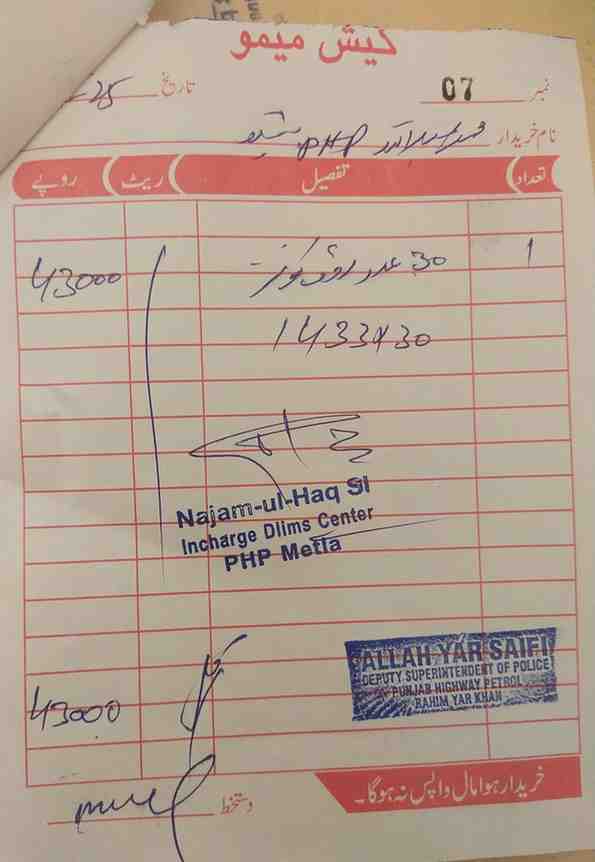 کیش میمو
نمبر 07 تاریخ 25
نام خریدار PHP
تعداد تفصیل ریٹ روپے
1 30 عدد 43000
1433x30
Najam-ul-Haq SI
Incharge Dlims Center
PHP Metla
ALLAH YAR SAIFI
DEPUTY SUPERINTENDENT OF POLICE
PUNJAB HIGHWAY PETROL
RAHIM YAR KHAN
43000
خریدار ہوا مال واپس نہ ہوگا۔
دستخط